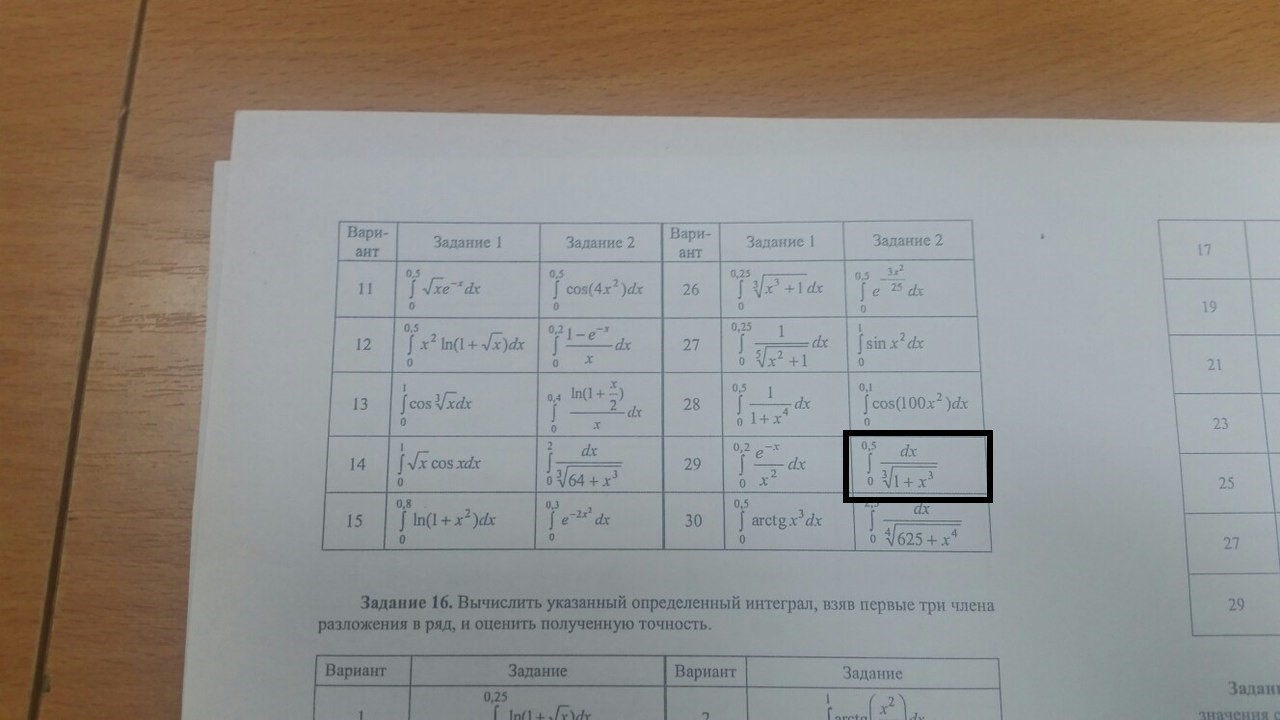 Вари-ант | Задание 1 | Задание 2 | Вари-ант | Задание 1 | Задание 2
11 | ∫₀^{0,5} √x e^{-x} dx | ∫₀^{0,5} cos(4x²)dx | 26 | ∫₀^{0,25} ∛(x³ + 1) dx | ∫₀^{0,5} e^{-3x²/25} dx
12 | ∫₀^{0,5} x² ln(1 + √x)dx | ∫₀^{0,2} (1 − e^{-x})/x dx | 27 | ∫₀^{0,25} 1/⁵√(x² + 1) dx | ∫₀^1 sin x² dx
13 | ∫₀^1 cos ∛x dx | ∫₀^{0,4} ln(1 + x/2)/x dx | 28 | ∫₀^{0,5} 1/(1 + x⁴) dx | ∫₀^{0,1} cos(100x²)dx
14 | ∫₀^1 √x cos xdx | ∫₀^2 dx/∛(64 + x³) | 29 | ∫₀^{0,2} e^{-x}/x² dx | ∫₀^{0,5} dx/∛(1 + x³)
15 | ∫₀^{0,8} ln(1 + x²)dx | ∫₀^{0,3} e^{-2x²} dx | 30 | ∫₀^{0,5} arctg x³ dx | ∫₀ dx/∜(625 + x⁴)
Задание 16. Вычислить указанный определенный интеграл, взяв первые три члена
разложения в ряд, и оценить полученную точность.
Вариант | Задание | Вариант | Задание
1 | ∫ 0,25 ln(1 + √x)dx | 2 | ∫ 1 arctg(x²
17
19
21
23
25
27
29